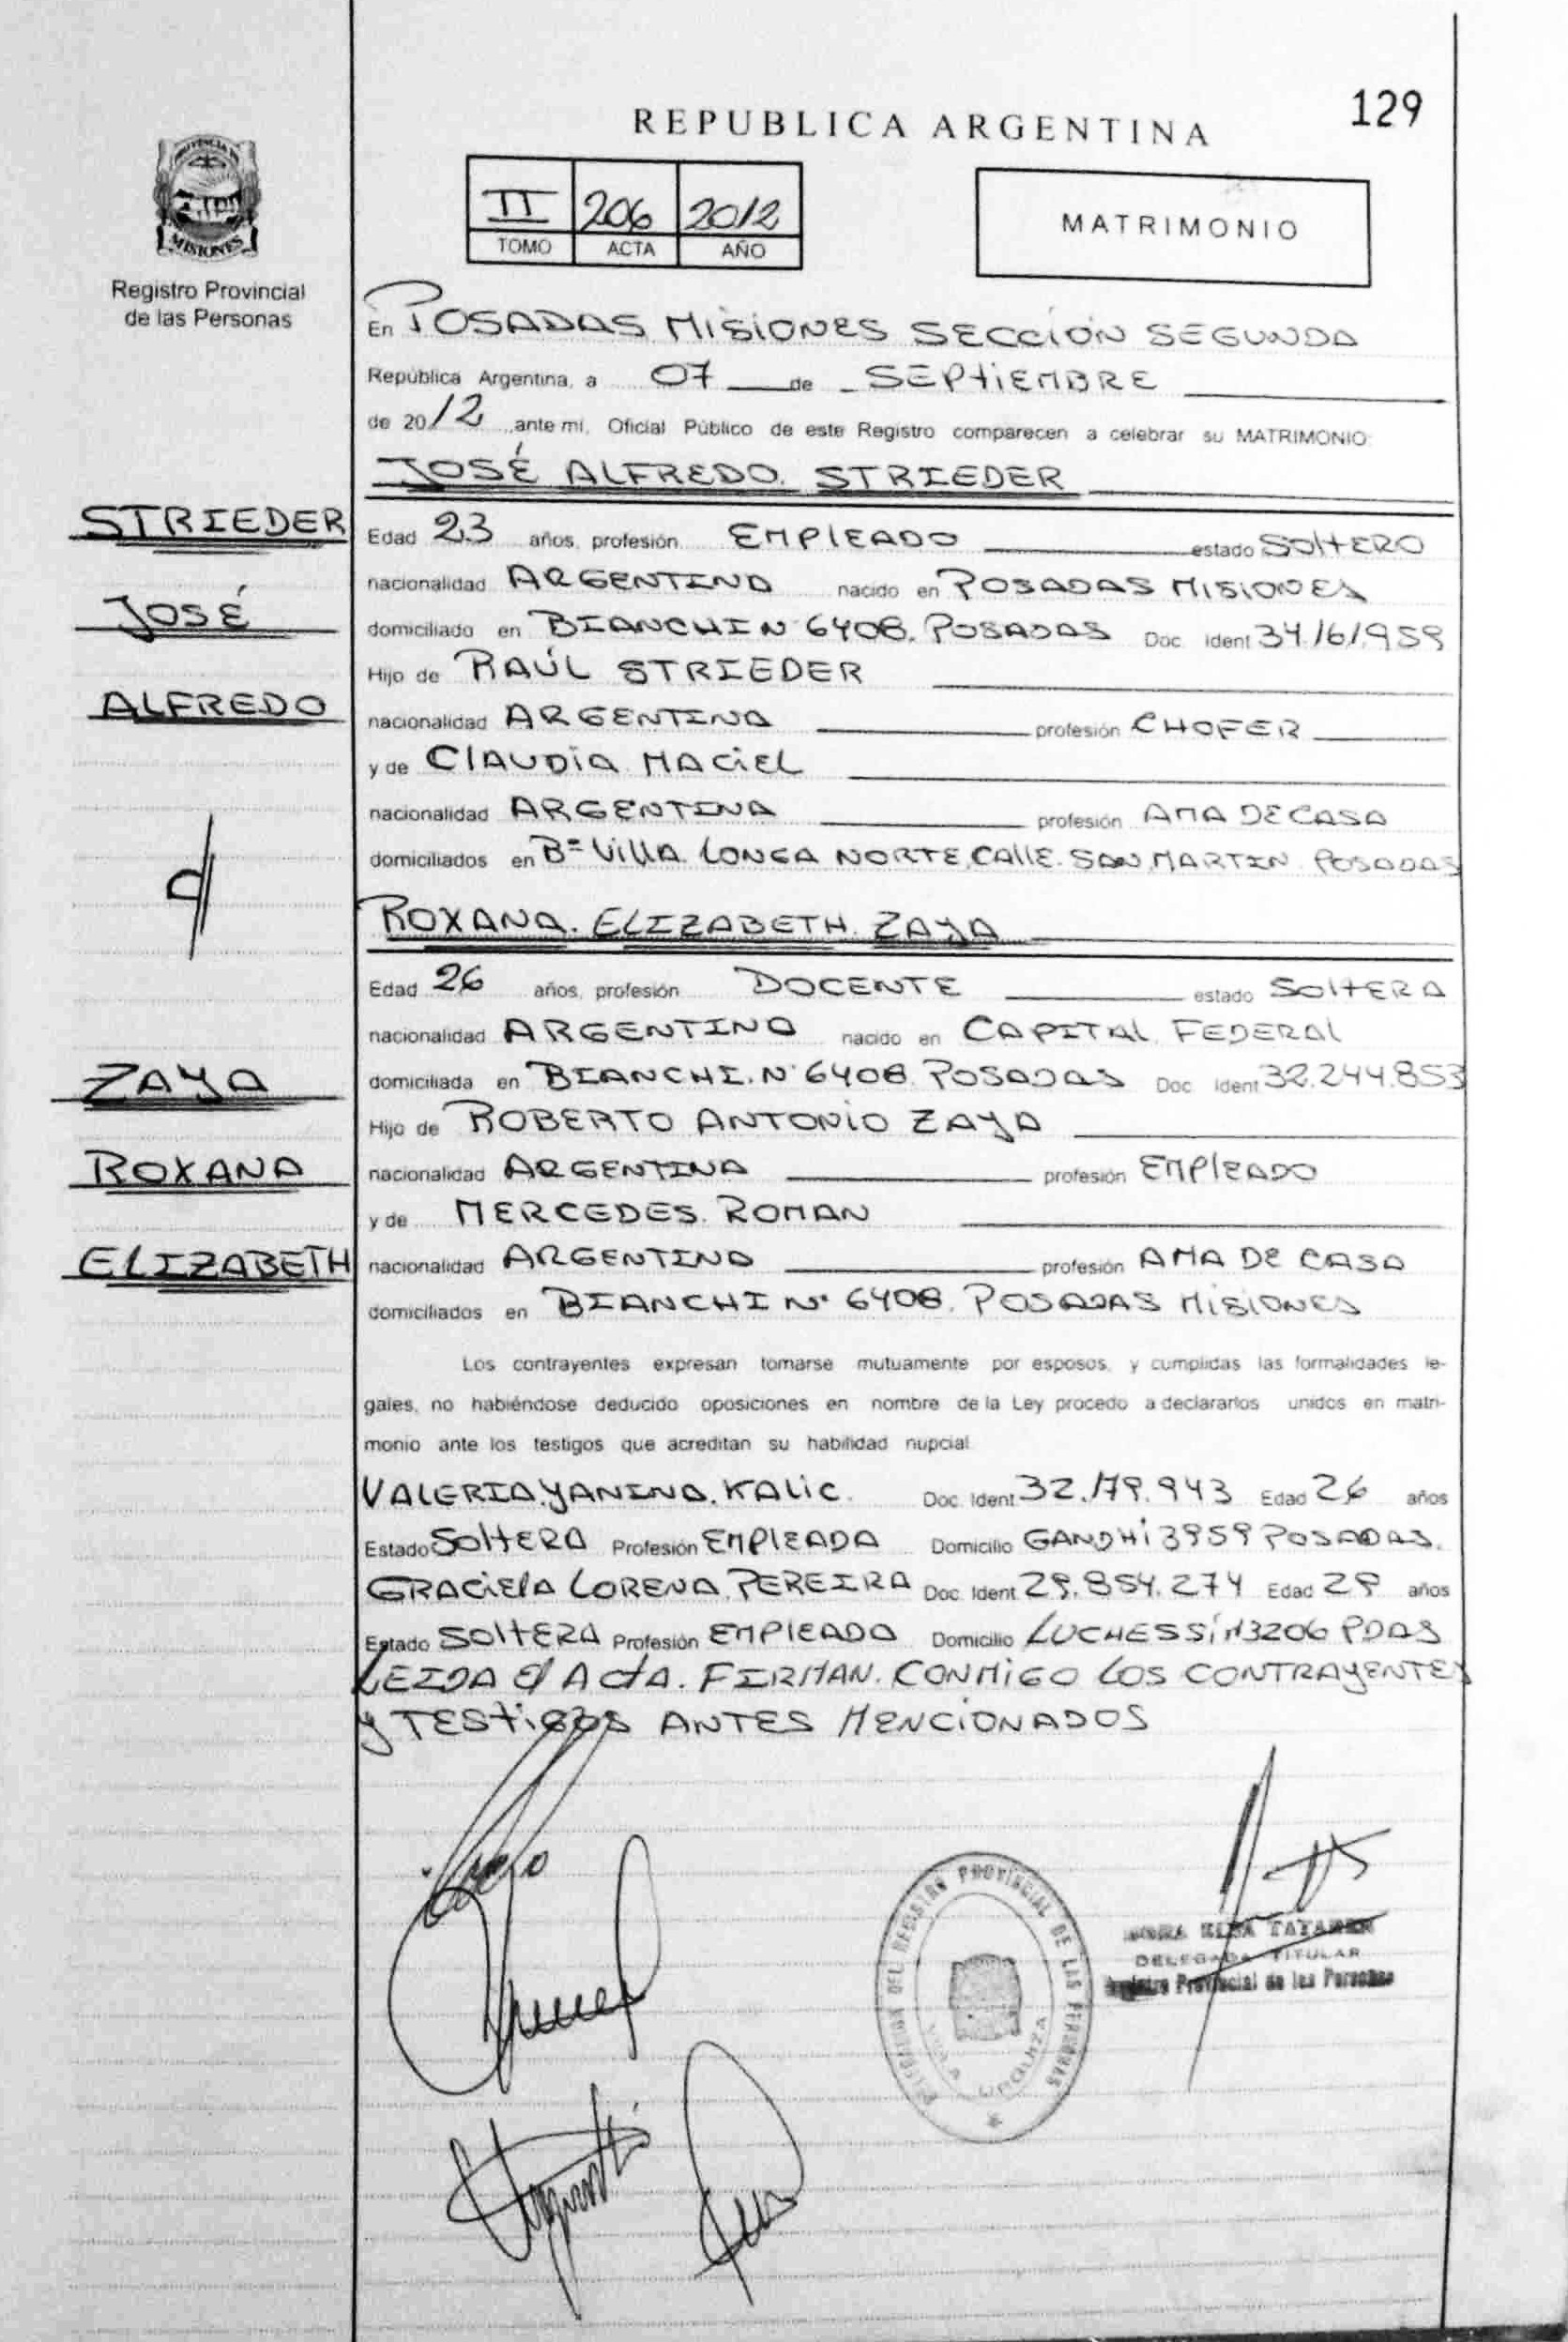 129
REPUBLICA ARGENTINA
II 206 2012
TOMO ACTA AÑO
MATRIMONIO
PROVINCIA DE
MISIONES
Registro Provincial
de las Personas
En POSADAS MISIONES SECCIÓN SEGUNDA
República Argentina, a 07 de SEPTIEMBRE
de 2012 ante mí, Oficial Público de este Registro comparecen a celebrar su MATRIMONIO:
JOSÉ ALFREDO. STRIEDER
STRIEDER
JOSÉ
ALFREDO
Edad 23 años, profesión EMPLEADO estado SOLTERO
nacionalidad ARGENTINA nacido en POSADAS MISIONES
domiciliado en BIANCHI N° 6408. POSADAS Doc. Ident 34.161.959
Hijo de RAÚL STRIEDER
nacionalidad ARGENTINA profesión CHOFER
y de CLAUDIA MACIEL
nacionalidad ARGENTINA profesión AMA DE CASA
domiciliados en Bº VILLA LONGA NORTE, CALLE SAN MARTIN POSADAS
ROXANA. ELIZABETH. ZAYA
Edad 26 años, profesión DOCENTE estado SOLTERA
nacionalidad ARGENTINA nacido en CAPITAL FEDERAL
domiciliada en BIANCHI. N° 6408 POSADAS Doc. Ident 32.244.853
ZAYA
ROXANA
ELIZABETH
Hijo de ROBERTO ANTONIO ZAYA
nacionalidad ARGENTINA profesión EMPLEADO
y de MERCEDES. ROMAN
nacionalidad ARGENTINA profesión AMA DE CASA
domiciliados en BIANCHI N° 6408. POSADAS MISIONES
Los contrayentes expresan tomarse mutuamente por esposos, y cumplidas las formalidades le-
gales, no habiéndose deducido oposiciones en nombre de la Ley procedo a declararlos unidos en matri-
monio ante los testigos que acreditan su habilidad nupcial
VALERIA. YANINA. KALIC. Doc. Ident. 32.179.943 Edad 26 años
Estado SOLTERA Profesión EMPLEADA Domicilio GANDHI 3959 POSADAS.
GRACIELA LORENA. PEREIRA Doc. Ident. 29.854.274 Edad 29 años
Estado SOLTERA Profesión EMPLEADA Domicilio 3206 PDAS
LEIDA El ACTA. FIRMAN. CONMIGO LOS CONTRAYENTES
Y TESTIGOS ANTES MENCIONADOS
DEL REGISTRO PROVINCIAL DE LAS PERSONAS
URQUIZA
DELEGADA TITULAR
Registro Provincial de las Personas